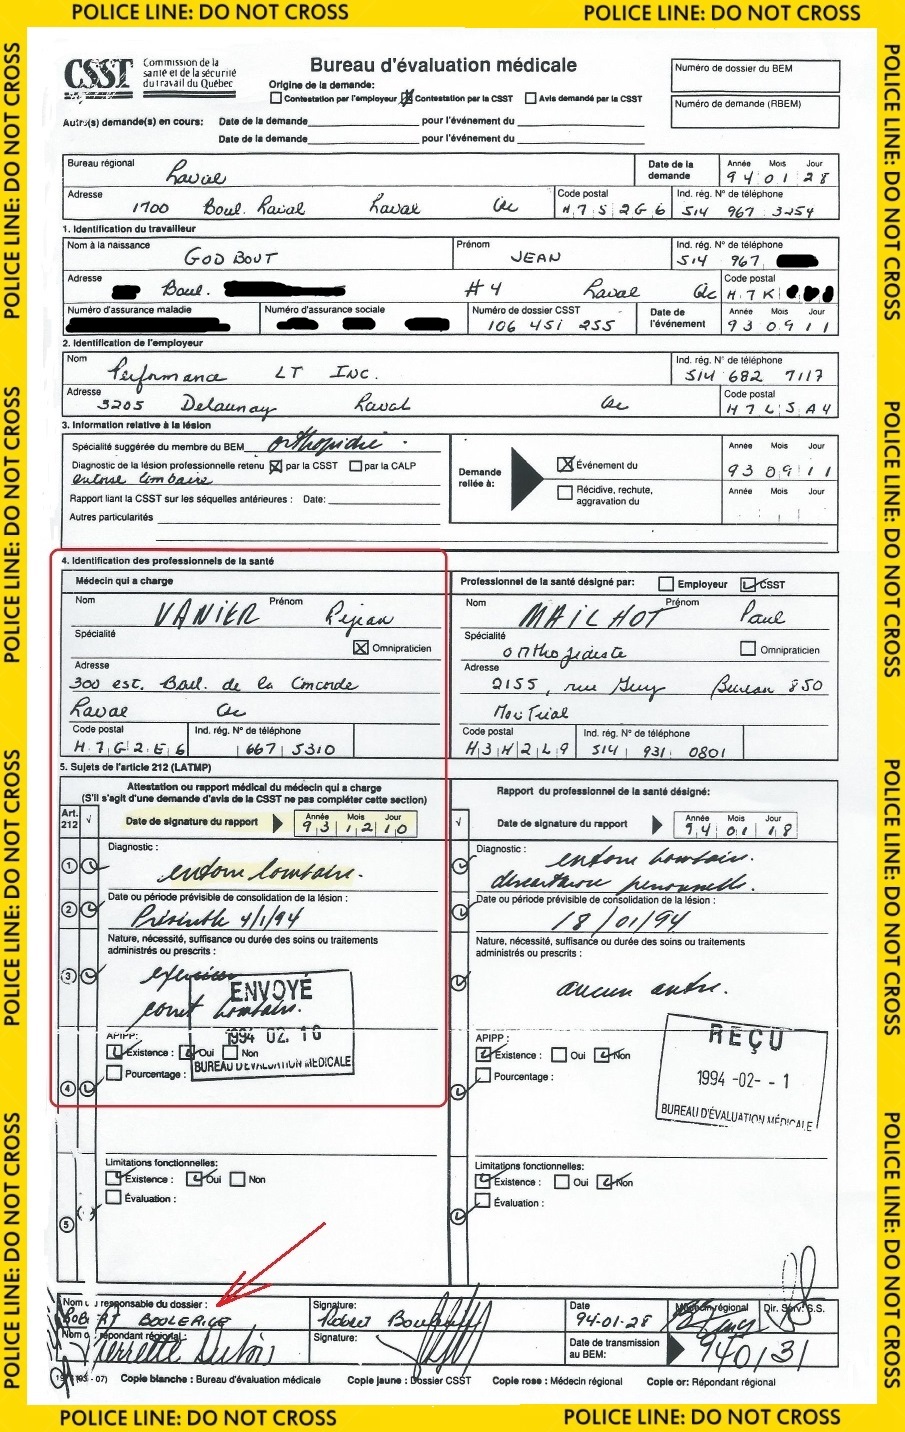 POLICE LINE: DO NOT CROSS POLICE LINE: DO NOT CROSS
CSST
Commission de la
santé et de la sécurité
du travail du Québec
Bureau d'évaluation médicale
Origine de la demande:
Contestation par l'employeur Contestation par la CSST Avis demandé par la CSST
Numéro de dossier du BEM
Numéro de demande (RBEM)
Autre(s) demande(s) en cours: Date de la demande pour l'événement du
Date de la demande pour l'événement du
Bureau régional Laval Date de la demande Année Mois Jour 94 01 28
Adresse 1700 Boul. Laval Laval Qc Code postal H7S2G6 Ind. rég. N° de téléphone 514 967 3254
1. Identification du travailleur
Nom à la naissance GODBOUT Prénom JEAN Ind. rég. N° de téléphone 514 967
Adresse Boul. #4 Laval Qc Code postal H7K
Numéro d'assurance maladie Numéro d'assurance sociale Numéro de dossier CSST 106 451 255 Date de l'événement Année Mois Jour 93 09 11
2. Identification de l'employeur
Nom Performance LT INC. Ind. rég. N° de téléphone 514 682 7117
Adresse 3205 Delaunay Laval Qc Code postal H7L5A4
3. Information relative à la lésion
Spécialité suggérée du membre du BEM orthopédie
Diagnostic de la lésion professionnelle retenu par la CSST par la CALP
entorse lombaire
Rapport liant la CSST sur les séquelles antérieures : Date:
Autres particularités
Demande reliée à:
Événement du Année Mois Jour 93 09 11
Récidive, rechute, aggravation du Année Mois Jour
4. Identification des professionnels de la santé
Médecin qui a charge
Nom VANIER Prénom Réjean
Spécialité Omnipraticien
Adresse
300 est. Boul. de la Concorde
Laval Qc
Code postal H7G2E6 Ind. rég. N° de téléphone 667 5310
Professionnel de la santé désigné par: Employeur CSST
Nom MAILHOT Prénom Paul
Spécialité orthopédiste Omnipraticien
Adresse
2155, rue Guy Bureau 850
Montréal
Code postal H3H2L9 Ind. rég. N° de téléphone 514 931 0801
5. Sujets de l'article 212 (LATMP)
Attestation ou rapport médical du médecin qui a charge
(S'il s'agit d'une demande d'avis de la CSST ne pas compléter cette section)
Art. 212 √
Date de signature du rapport Année Mois Jour 93 12 10
1 Diagnostic :
entorse lombaire.
2 Date ou période prévisible de consolidation de la lésion :
Prévisible 4/1/94
Nature, nécessité, suffisance ou durée des soins ou traitements
administrés ou prescrits :
3 exercices
corset lombaire.
ENVOYÉ
1994 02. 10
BUREAU D'ÉVALUATION MÉDICALE
APIPP:
Existence : Oui Non
Pourcentage :
4
Limitations fonctionnelles:
Existence : Oui Non
Évaluation :
5
Rapport du professionnel de la santé désigné:
√ Date de signature du rapport Année Mois Jour 94 01 18
Diagnostic :
entorse lombaire.
discarthrose personnelle.
Date ou période prévisible de consolidation de la lésion :
18/01/94
Nature, nécessité, suffisance ou durée des soins ou traitements
administrés ou prescrits :
aucun autre.
APIPP:
Existence : Oui Non
Pourcentage :
REÇU
1994 -02- -1
BUREAU D'ÉVALUATION MÉDICALE
Limitations fonctionnelles:
Existence : Oui Non
Évaluation :
Nom responsable du dossier :
BOULERICE
Signature:
Robert
Date
94-01-28
régional Dir. Serv. S.S.
Nom répondant régional :
Pierrette Dubois
Signature:
Date de transmission
au BEM:
940131
Copie blanche : Bureau d'évaluation médicale Copie jaune : Dossier CSST Copie rose : Médecin régional Copie or: Répondant régional
POLICE LINE: DO NOT CROSS POLICE LINE: DO NOT CROSS
POLICE LINE: DO NOT CROSS
POLICE LINE: DO NOT CROSS
POLICE LINE: DO NOT CROSS
POLICE LINE: DO NOT CROSS
POLICE LINE: DO NOT CROSS
POLICE LINE: DO NOT CROSS
POLICE LINE: DO NOT CROSS
POLICE LINE: DO NOT CROSS